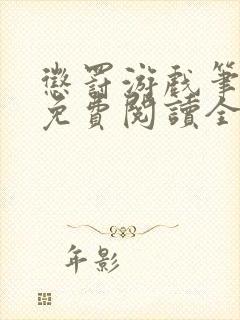 懲罰游戲筆
免費閱讀全
年影